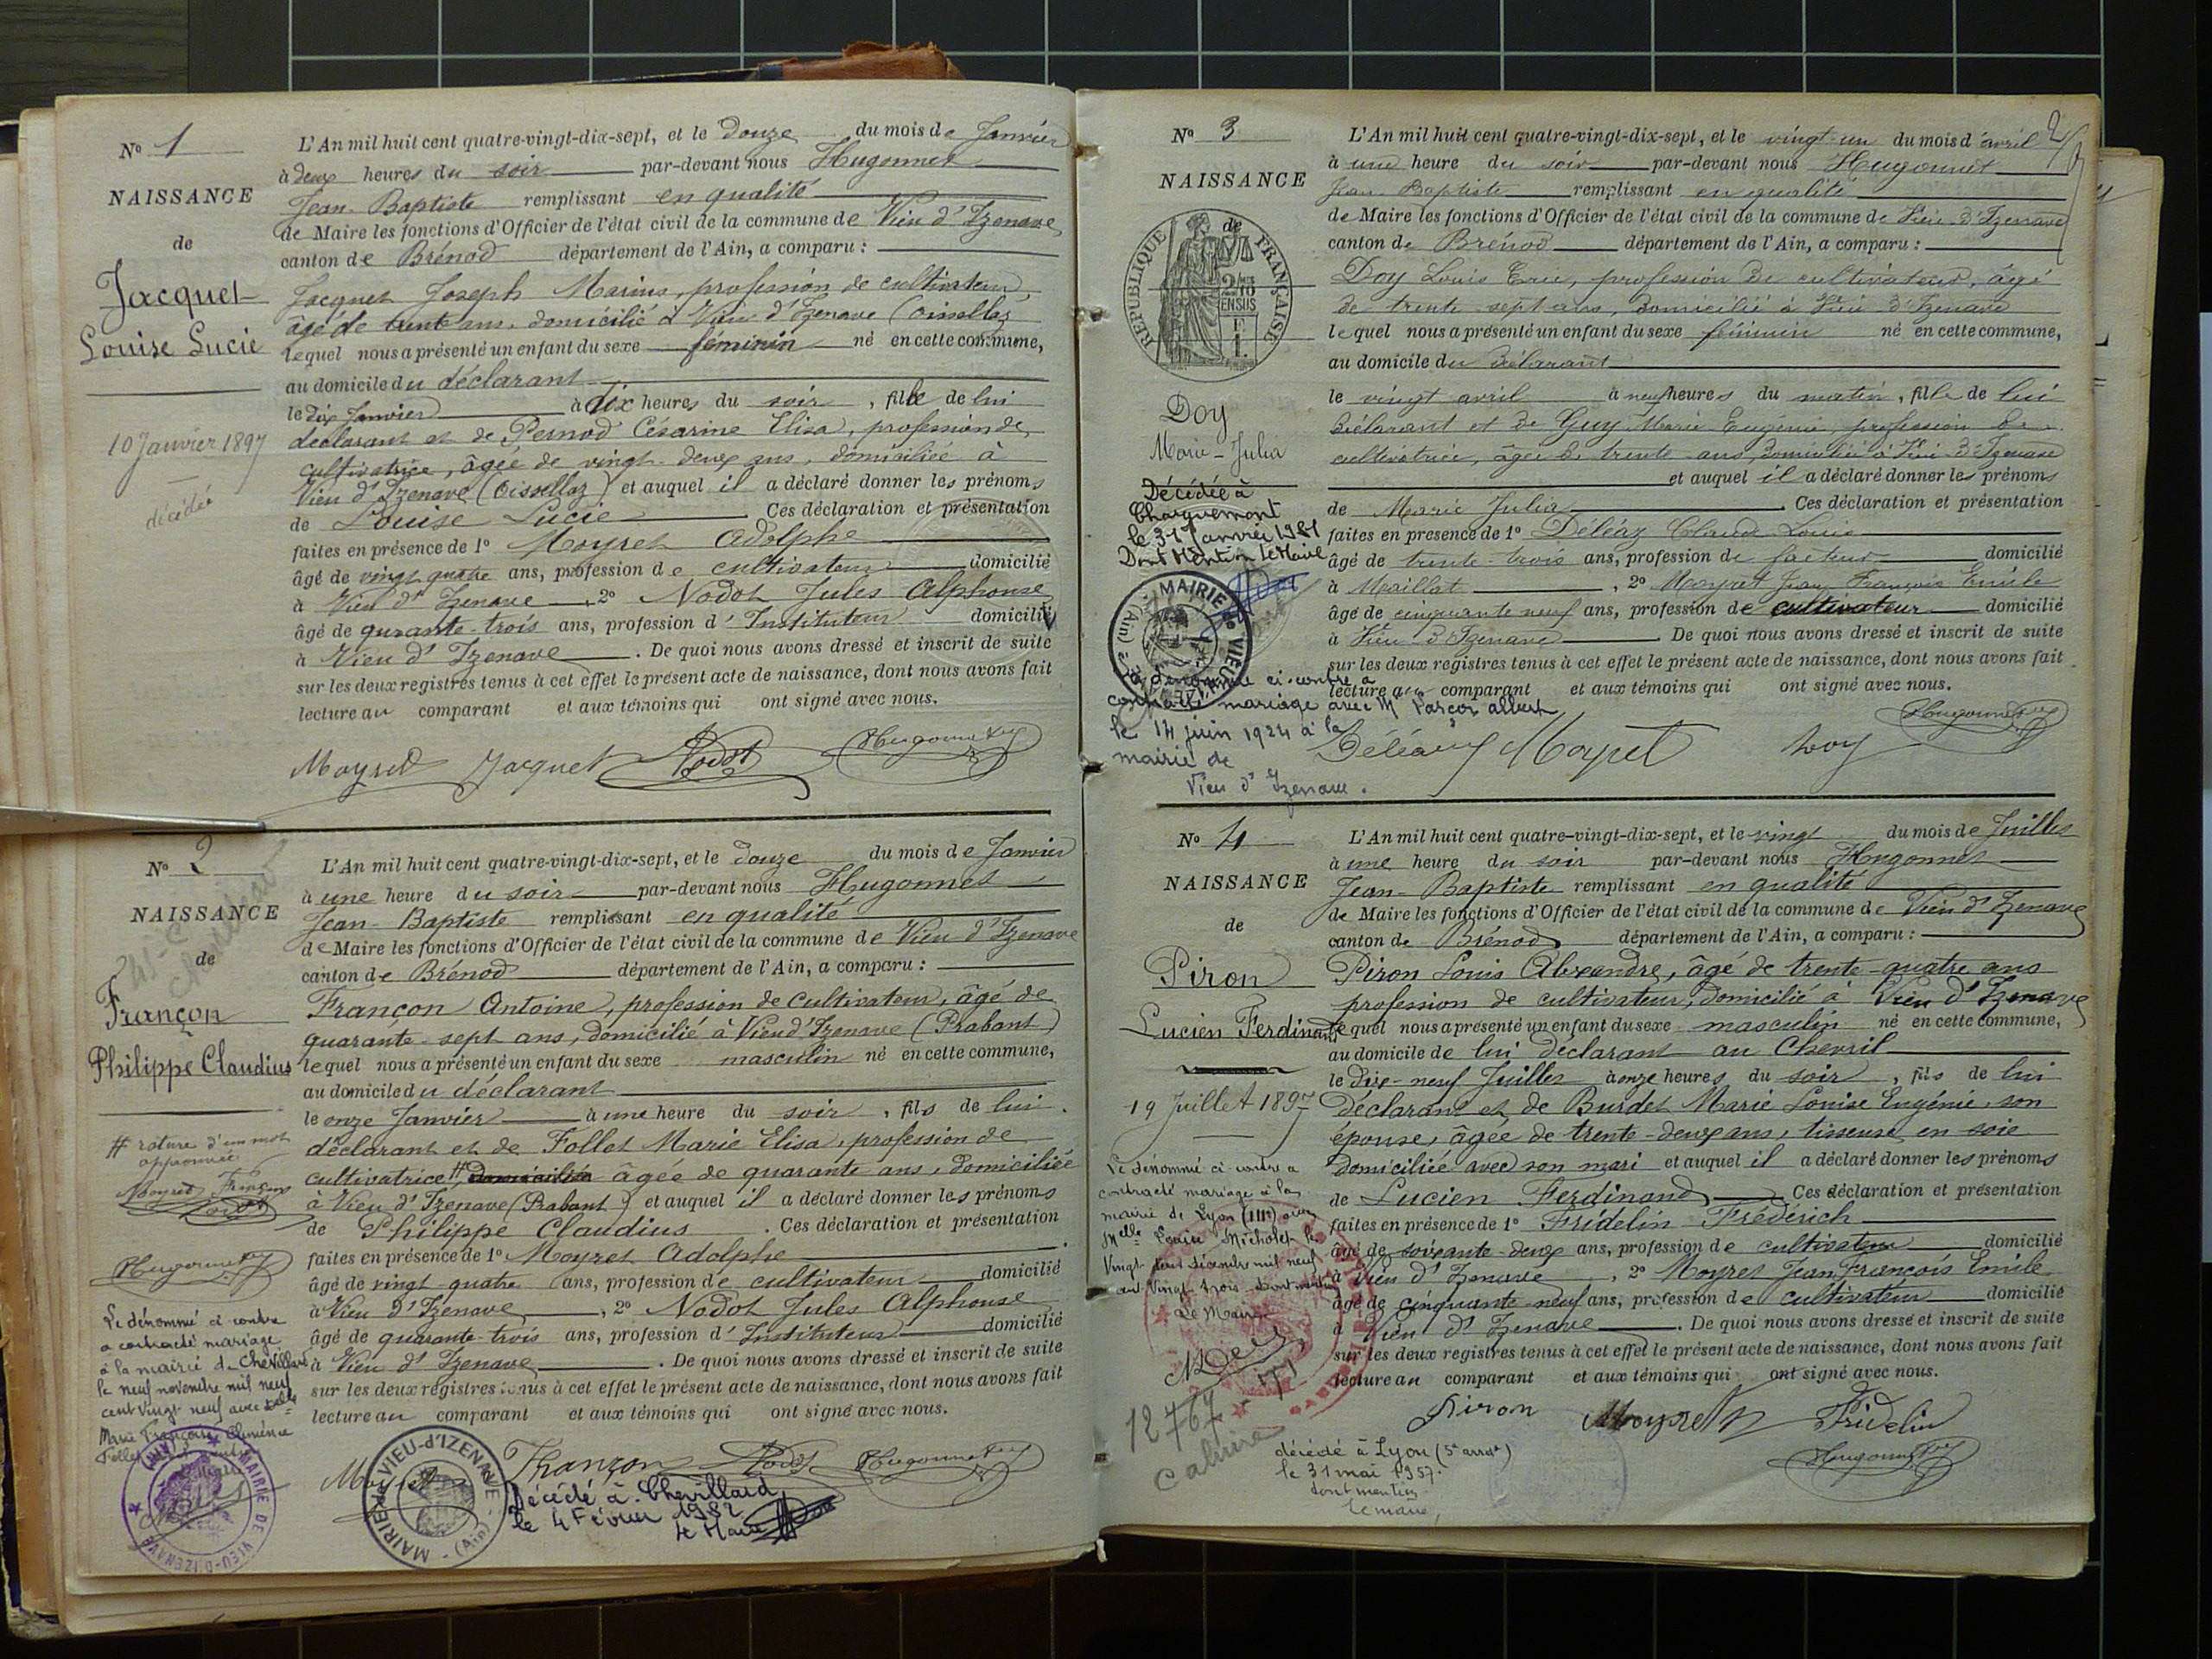 N° 1
NAISSANCE
de
Jacquet
Louise Lucie
10 Janvier 1897
décédée
L'An mil huit cent quatre-vingt-dix-sept, et le douze du mois de Janvier
à deux heures du soir par-devant nous Hugonnet
Jean-Baptiste remplissant en qualité
de Maire les fonctions d'Officier de l'état civil de la commune de Vieu d'Izenave
canton de Brénod département de l'Ain, a comparu :
Jacquet Joseph Marius, profession de cultivateur,
âgé de trente ans, domicilié à Vieu d'Izenave (Oisselaz)
lequel nous a présenté un enfant du sexe féminin né en cette commune,
au domicile du déclarant
le dix Janvier à dix heures du soir, fille de lui
déclarant et de Pernod Césarine Elisa, profession de
cultivatrice, âgée de vingt-deux ans, domiciliée à
Vieu d'Izenave (Oissellaz) et auquel il a déclaré donner les prénoms
de Louise Lucie Ces déclaration et présentation
faites en présence de 1° Moyret Adolphe
âgé de vingt quatre ans, profession de cultivateur domicilié
à Vieu d'Izenave, 2° Nodot Jules Alphonse
âgé de quarante-trois ans, profession d'Instituteur domicilié
à Vieu d'Izenave. De quoi nous avons dressé et inscrit de suite
sur les deux registres tenus à cet effet le présent acte de naissance, dont nous avons fait
lecture au comparant et aux témoins qui ont signé avec nous.
Moyret Jacquet Nodot Hugonnet
N° 2
NAISSANCE
de
Françon
Philippe Claudius
# rature d'un mot
approuvée
Moyret Françon
Nodot
Hugonnet
Le dénommé ci contre
a contracté mariage
à la mairie de Chevillard
le neuf novembre mil neuf
cent vingt neuf avec Melle
Marie Françoise Clémence
L'An mil huit cent quatre-vingt-dix-sept, et le douze du mois de Janvier
à une heure du soir par-devant nous Hugonnet
Jean-Baptiste remplissant en qualité
de Maire les fonctions d'Officier de l'état civil de la commune de Vieu d'Izenave
canton de Brénod département de l'Ain, a comparu :
Françon Antoine, profession de cultivateur, âgé de
quarante-sept ans, domicilié à Vieu d'Izenave (Prabant)
lequel nous a présenté un enfant du sexe masculin né en cette commune,
au domicile du déclarant
le onze Janvier à une heure du soir, fils de lui
déclarant et de Follet Marie Elisa, profession de
cultivatrice # domiciliée âgée de quarante ans, domiciliée
à Vieu d'Izenave (Prabant) et auquel il a déclaré donner les prénoms
de Philippe Claudius. Ces déclaration et présentation
faites en présence de 1° Moyret Adolphe
âgé de vingt-quatre ans, profession de cultivateur domicilié
à Vieu d'Izenave, 2° Nodot Jules Alphonse
âgé de quarante-trois ans, profession d'Instituteur domicilié
à Vieu d'Izenave. De quoi nous avons dressé et inscrit de suite
sur les deux registres tenus à cet effet le présent acte de naissance, dont nous avons fait
lecture au comparant et aux témoins qui ont signé avec nous.
Moyret Françon Nodot Hugonnet
MAIRIE DE VIEU-D'IZENAVE (Ain)
MAIRIE de VIEU-d'IZENAVE (Ain)
Décédé à Chevillard
le 4 Février 1982
Le Maire
2
N° 3
NAISSANCE
de
REPUBLIQUE FRANÇAISE
Doy
Marie-Julia
Décédée à
Charquemont
le 31 Janvier 1981
Dont Mention Le Maire
MAIRIE de VIEU (Ain)
La dénommée ci-contre a
contracté mariage avec Mr Pascor Albert
le 14 juin 1924 à la
mairie de
Vieu d'Izenave.
L'An mil huit cent quatre-vingt-dix-sept, et le vingt-un du mois d'avril
à une heure du soir par-devant nous Hugonnet
Jean Baptiste remplissant en qualité
de Maire les fonctions d'Officier de l'état civil de la commune de Vieu-d'Izenave
canton de Brénod département de l'Ain, a comparu :
Doy Louis, profession de cultivateur, âgé
de trente-sept ans, domicilié à Vieu d'Izenave
lequel nous a présenté un enfant du sexe féminin né en cette commune,
au domicile du déclarant
le vingt avril à neuf heures du matin, fille de lui
déclarant et de Guy Marie Eugénie, profession de
cultivatrice, âgée de trente ans, domiciliée à Vieu d'Izenave
et auquel il a déclaré donner les prénoms
de Marie Julia. Ces déclaration et présentation
faites en présence de 1° Déléaz Claude Louis
âgé de trente-trois ans, profession de facteur domicilié
à Maillat, 2° Moyret Jean François Emile
âgé de cinquante neuf ans, profession de cultivateur domicilié
à Vieu d'Izenave. De quoi nous avons dressé et inscrit de suite
sur les deux registres tenus à cet effet le présent acte de naissance, dont nous avons fait
lecture au comparant et aux témoins qui ont signé avec nous.
Hugonnet
Déléaz Moyret Doy
N° 4
NAISSANCE
de
Piron
Lucien Ferdinand
19 Juillet 1897
Le dénommé ci contre a
contracté mariage à la
mairie de Lyon (IIIe) avec
Melle Louise Micholet le
Vingt décembre mil neuf
cent vingt trois dont mention
Le Maire
12767
Caluire
L'An mil huit cent quatre-vingt-dix-sept, et le vingt du mois de Juillet
à une heure du soir par-devant nous Hugonnet
Jean-Baptiste remplissant en qualité
de Maire les fonctions d'Officier de l'état civil de la commune de Vieu d'Izenave
canton de Brénod département de l'Ain, a comparu :
Piron Louis Alexandre, âgé de trente-quatre ans
profession de cultivateur, domicilié à Vieu d'Izenave
lequel nous a présenté un enfant du sexe masculin né en cette commune,
au domicile de lui déclarant au Chevril
le dix-neuf Juillet à onze heures du soir, fils de lui
déclarant et de Burdet Marie Louise Eugénie, son
épouse, âgée de trente-deux ans, tisseuse en soie
domiciliée avec son mari et auquel il a déclaré donner les prénoms
de Lucien Ferdinand Ces déclaration et présentation
faites en présence de 1° Fridelin Frédérich
âgé de soixante-deux ans, profession de cultivateur domicilié
à Vieu d'Izenave, 2° Moyret Jean François Emile
âgé de cinquante-neuf ans, profession de cultivateur domicilié
à Vieu d'Izenave. De quoi nous avons dressé et inscrit de suite
sur les deux registres tenus à cet effet le présent acte de naissance, dont nous avons fait
lecture au comparant et aux témoins qui ont signé avec nous.
Piron Moyret Fridelin
Hugonnet
décédé à Lyon (5e arrdt)
le 31 mai 1957.
dont mention
Le maire,